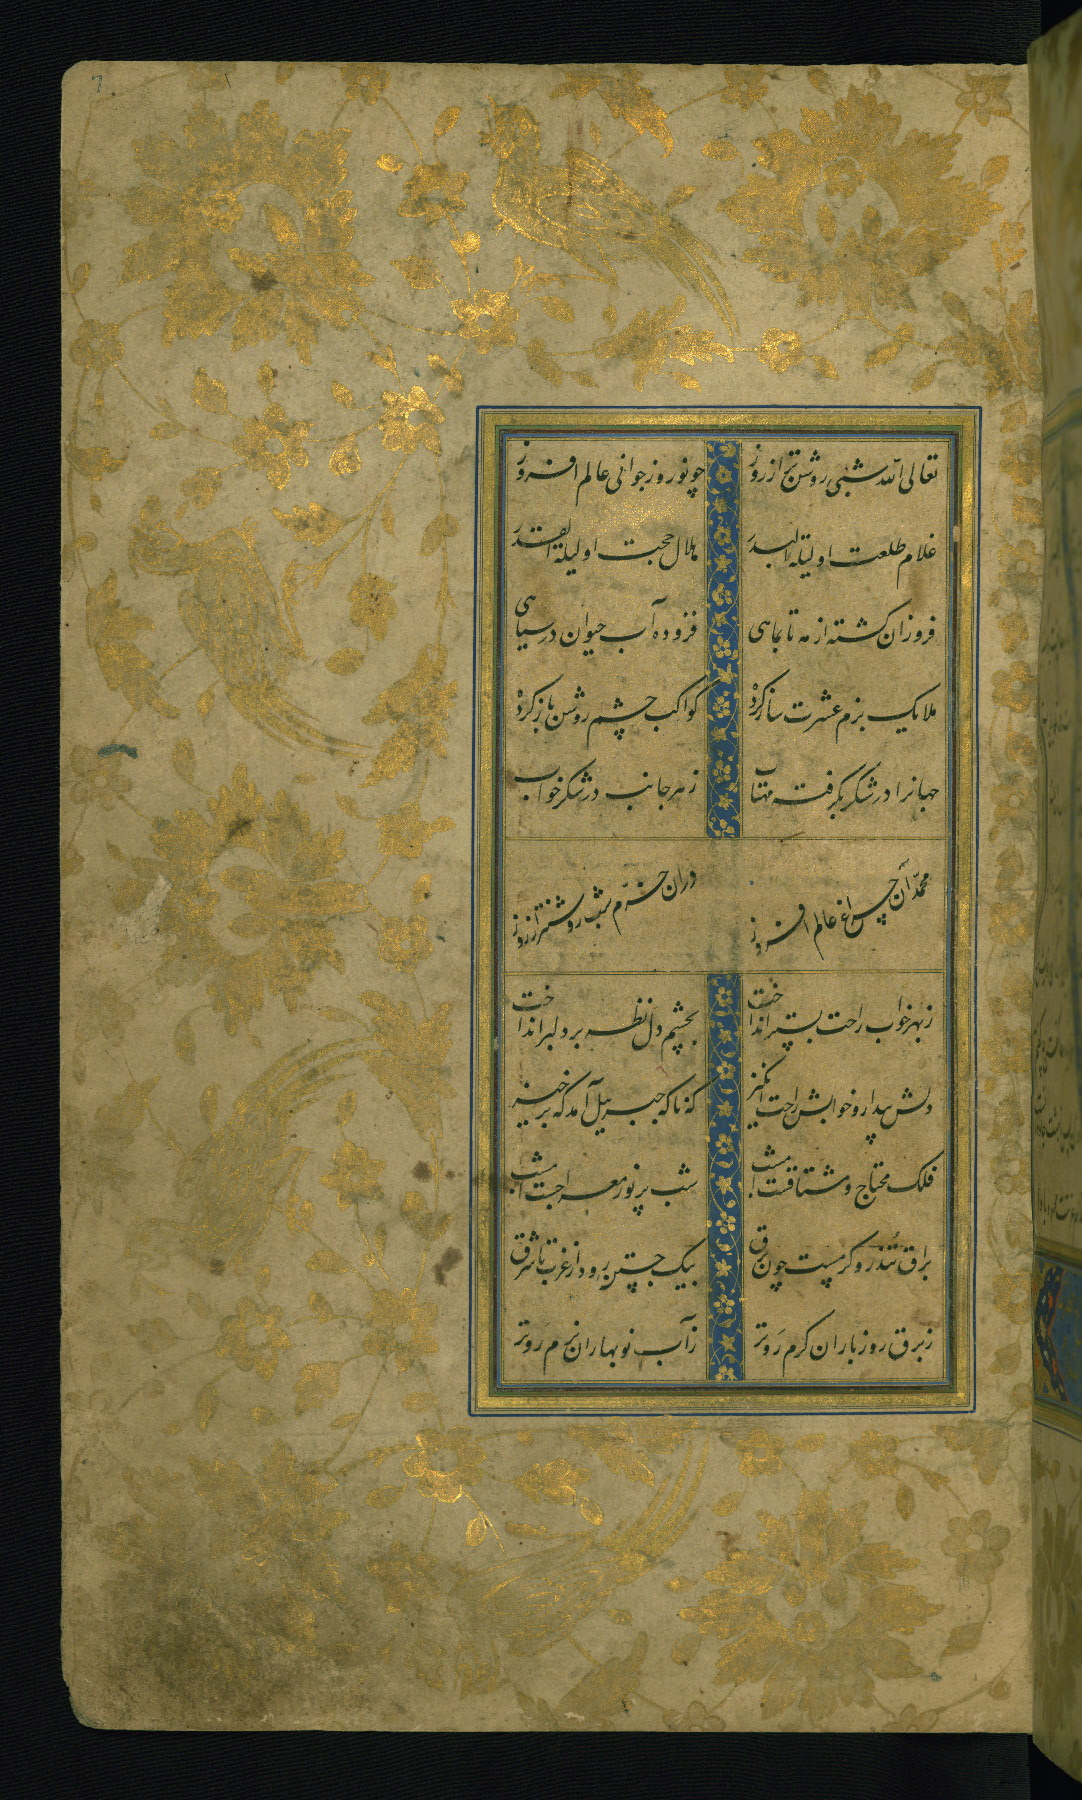 تعالی الله شبی روشن تر از روز چو نوروز جوانی عالم افروز
غلام طلعت او لیلة البدر هلال حجت او لیلة القدر
فروزان کشته از مه تا بماهی فزوده آب حیوان در سیاهی
ملایک بزم عشرت ساز کرده کواکب چشم روشن باز کرده
جهانرا در شکر بگرفت مهتاب ز هر جانب در شکر خواب
محمد آن چراغ عالم افروز دران خرم شب روشنتر از روز
ز بهر خواب راحت بستر انداخت بچشم دل نظر بر دلبر انداخت
دلش بیدار و خوابش راحت انکیز که ناکه جبرییل آمد که برخیز
فلک محتاج و مشتاقت امشب شب پر نور معراجت امشب
براق تندرو کرمیست چون برق بیک جستن رود از غرب تا شرق
ز برق روز باران کرم روتر ز آب نوبهاران نرم روتر